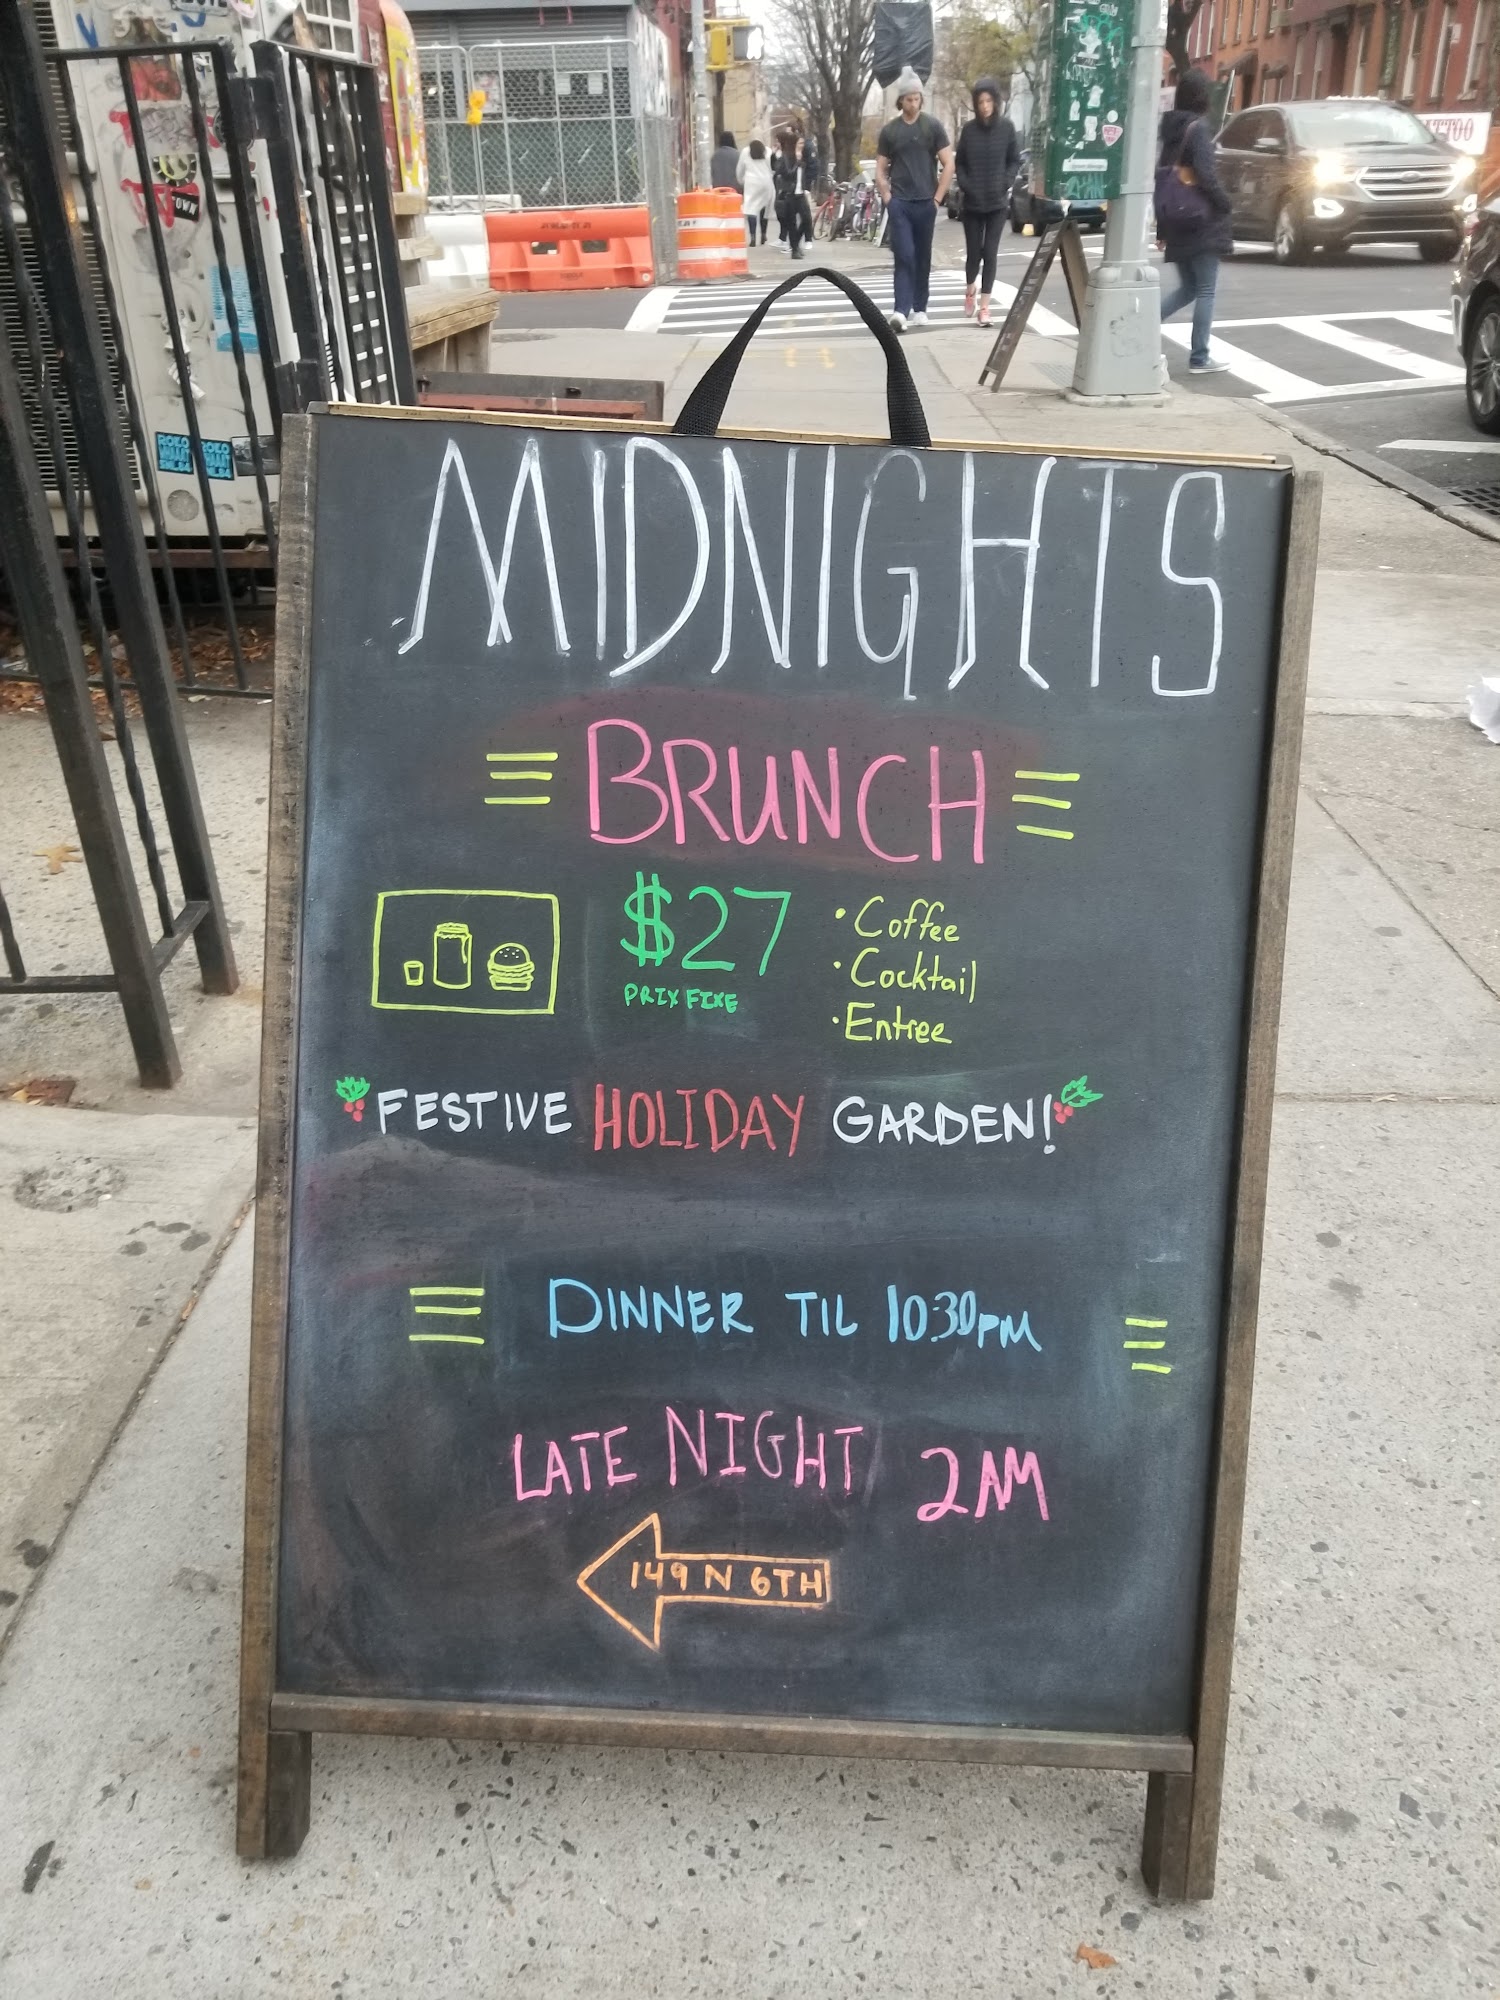 MIDNIGHTS
BRUNCH
$27
PRIX FIXE
• Coffee
• Cocktail
• Entree
FESTIVE HOLIDAY GARDEN!
DINNER TIL 10:30PM
LATE NIGHT 2AM
149 N 6TH